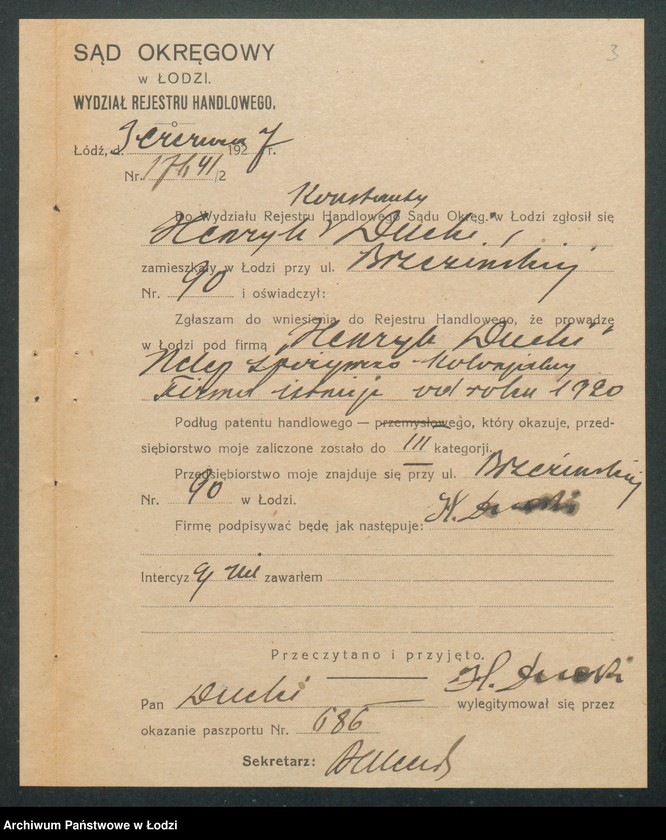 3
SĄD OKRĘGOWY
w ŁODZI.
WYDZIAŁ REJESTRU HANDLOWEGO.
Łódź, d. 3 czerwca 1927 r.
Nr. /2
Konstanty
Do Wydziału Rejestru Handlowego Sądu Okręg. w Łodzi zgłosił się
Henryk Ducki,
zamieszkały w Łodzi przy ul. Brzezińskiej
Nr. 90 i oświadczył:
Zgłaszam do wniesienia do Rejestru Handlowego, że prowadzę
w Łodzi pod firmą „Henryk Ducki"
sklep spożywczo-kolonjalny
Firma istnieje od roku 1920
Podług patentu handlowego — przemysłowego, który okazuje, przed-
siębiorstwo moje zaliczone zostało do III kategorji.
Przedsiębiorstwo moje znajduje się przy ul. Brzezińskiej
Nr. 90 w Łodzi.
Firmę podpisywać będę jak następuje: H. Ducki
Intercyzy nie zawarłem
Przeczytano i przyjęto.
H. Ducki
Pan Ducki wylegitymował się przez
okazanie paszportu Nr. 686
Sekretarz:
Archiwum Państwowe w Łodzi